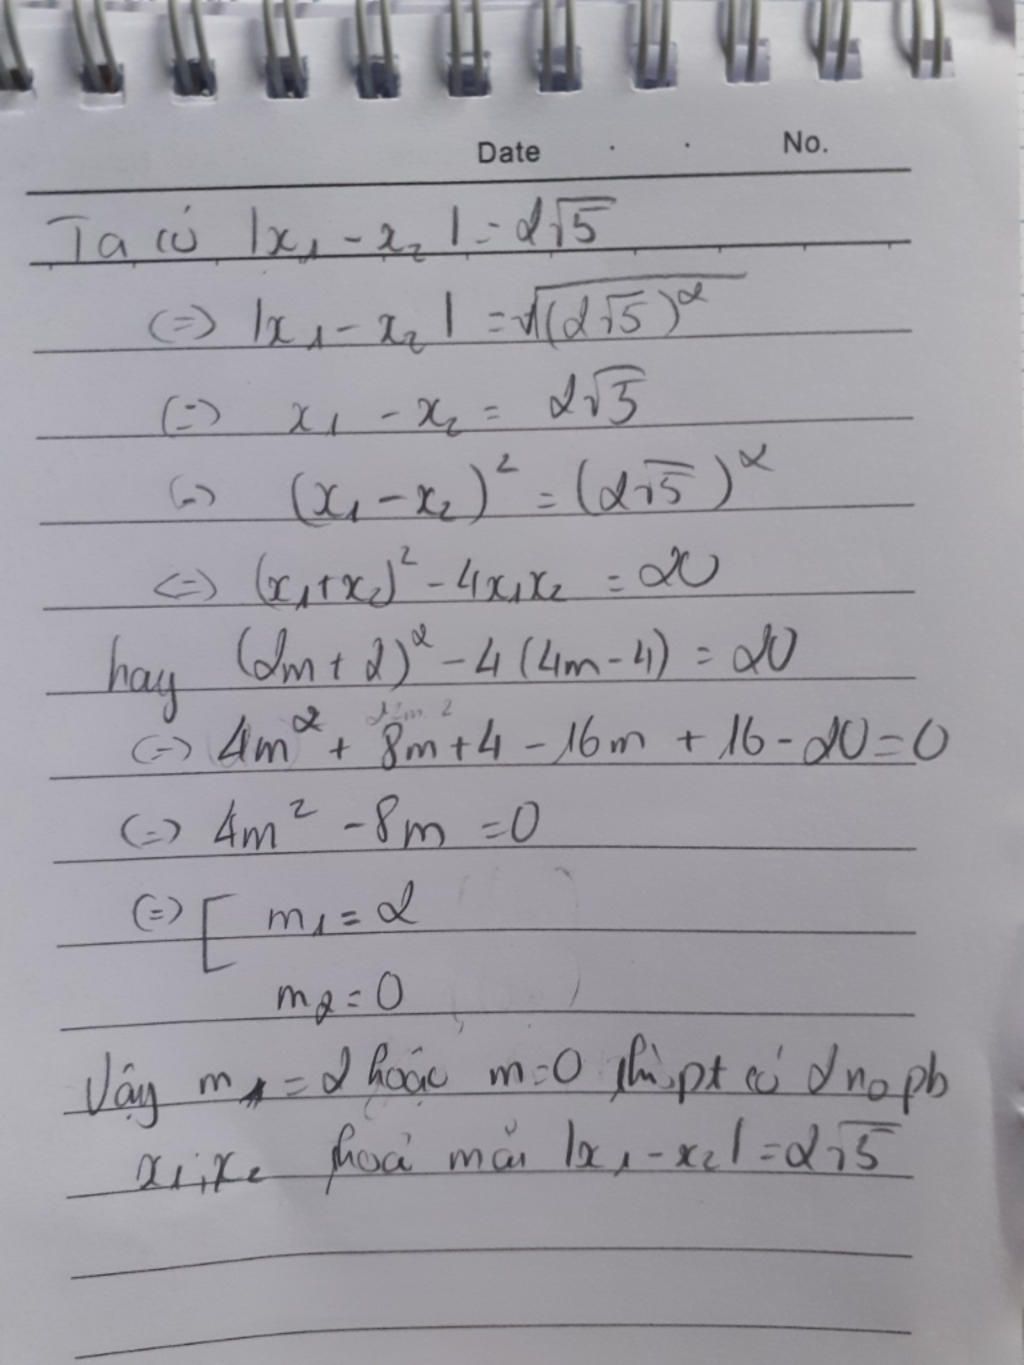 Date . . No.
Ta có |x₁ - x₂| = 2√5
(=) |x₁ - x₂| = √(2√5)²
(=) x₁ - x₂ = 2√5
(=) (x₁ - x₂)² = (2√5)²
<=> (x₁ + x₂)² - 4x₁x₂ = 20
hay (2m + 2)² - 4(4m - 4) = 20
(=) 4m² + 8m + 4 - 16m + 16 - 20 = 0
(=) 4m² - 8m = 0
(=) [ m₁ = 2
m₂ = 0
Vậy m = 2 hoặc m = 0 thì pt có 2 no pb
x₁; x₂ thoả mãn |x₁ - x₂| = 2√5